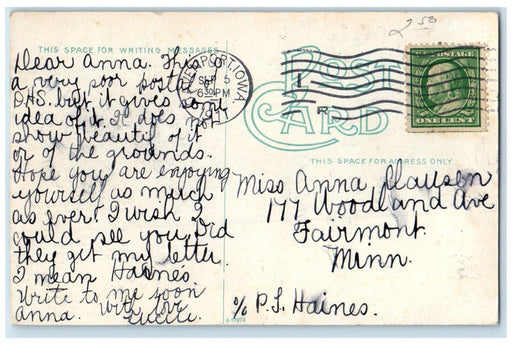 2.50
THIS SPACE FOR WRITING MESSAGES
Dear Anna. This is
a very poor postal
D.H.S. but it gives some
idea of it. It does not
show beauty of it
or of the grounds.
Hope you are enjoying
yourself as much
as ever. I wish I
could see you. Did
they get my letter.
I mean Haines
Write to me soon
Anna. With love
DAVENPORT, IOWA
SEP 5
6 30 PM
1911
POST
CARD
ONE CENT
THIS SPACE FOR ADDRESS ONLY
Miss Anna Clausen
177 Woodland Ave
Fairmont
Minn.
% P.L. Haines.